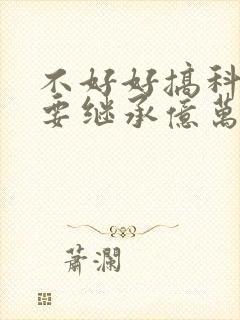 不好好搞科
要继承億萬
蕭瀾